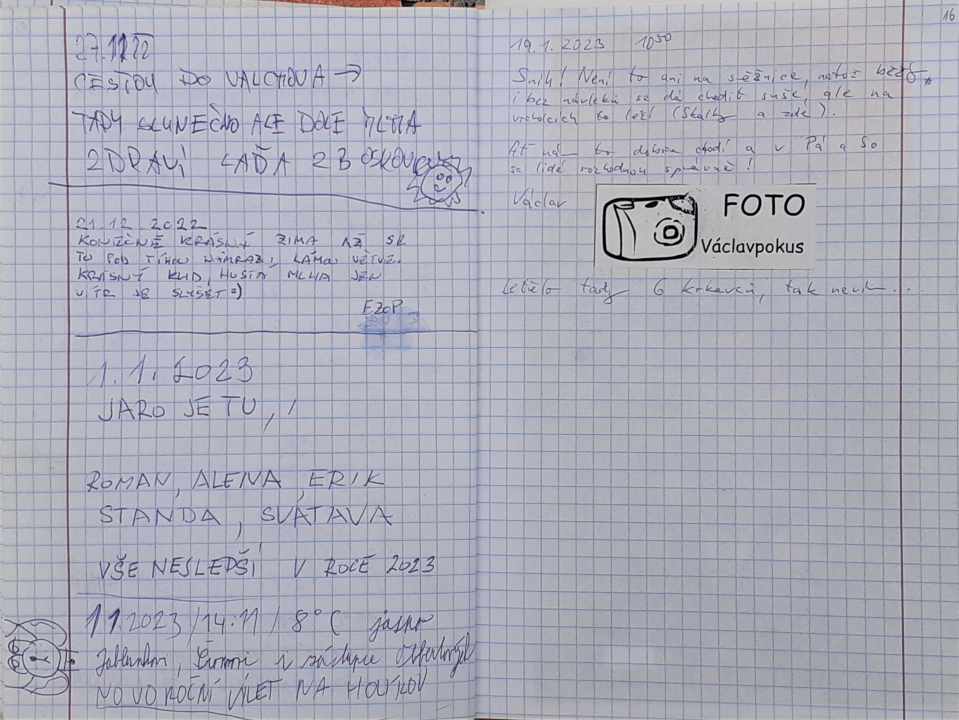 27.11.22
CESTOU DO VALCHOVA →
TADY SLUNEČNO ALE DOLE MLHA
ZDRAVÍ LAĎA Z BOSKOVIC
21.12 2022
KONEČNĚ KRÁSNÁ ZIMA AŽ SE
TU POD TÍHOU NÁMRAZ, LÁMOU VĚTVE.
KRÁSNÝ KLID, HUSTÁ MLHA JEN
VÍTR JE SLYŠET =)
EZOP
1.1.2023
JARO JE TU,
ROMAN, ALENA, ERIK
STANDA, SVATAVA
VŠE NESLEPŠÍ V ROCE 2023
1.1.2023 / 14:11 / 8°C jasno
i
NOVOROČNÍ VÝLET NA
16
19.1.2023 10⁵⁰
Sníh! Není to ani na sněžnice, natož běžky,
i bez návleků se dá chodit suše, ale na
vrcholcích to leží (Skalky a zde).
Ať nám to dobře chodí a v Pá a So
se lidé rozhodnou správně!
Václav
FOTO
Václavpokus
Letělo tady 6 krkavců, tak nevím...